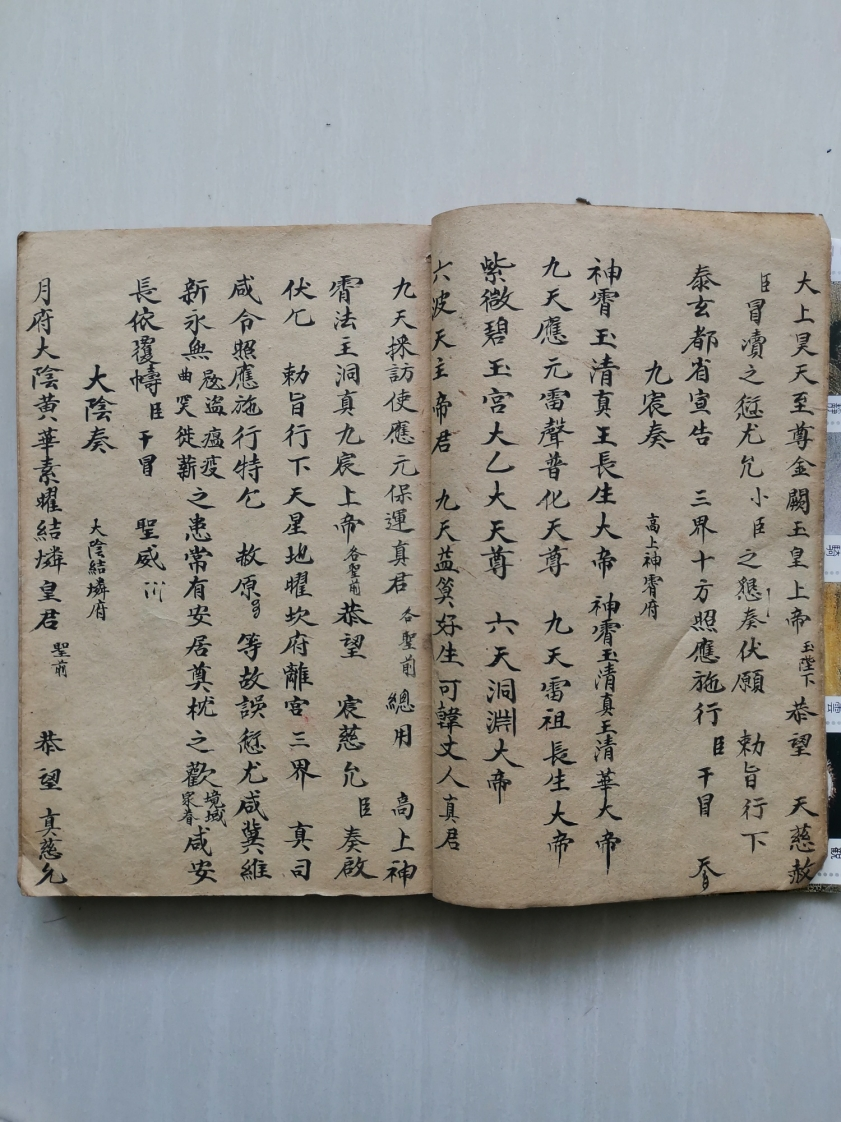 大上昊天至尊金闕玉皇上帝 玉陛下 恭望 天慈赦
臣冒瀆之愆尤允小臣之懇奏伏願 勅旨行下
泰玄都省宣告 三界十方照應施行 臣干冒
九宸奏 高上神霄府
神霄玉清真王長生大帝 神霄玉清真王清華大帝
九天應元雷聲普化天尊 九天雷祖長生大帝
紫微碧玉宮大乙大天尊 六天洞淵大帝
六波天主帝君 九天益筭好生可韓丈人真君
九天採訪使應元保運真君 各聖前 總用 高上神
霄法主洞真九宸上帝 各聖前 恭望 宸慈允 臣奏啟
伏乞 勅旨行下天星地曜坎府離宮三界 真司
咸令照應施行特乞 赦原 等故誤愆尤咸冀維
新永無 盗瘟疫 曲突徙薪 之患常有安居奠枕之歡 境域 衆眷 咸安
長依覆幬 臣干冒 聖威
大陰奏 大陰結璘府
月府大陰黃華素曜結璘皇君 聖前 恭望 真慈允